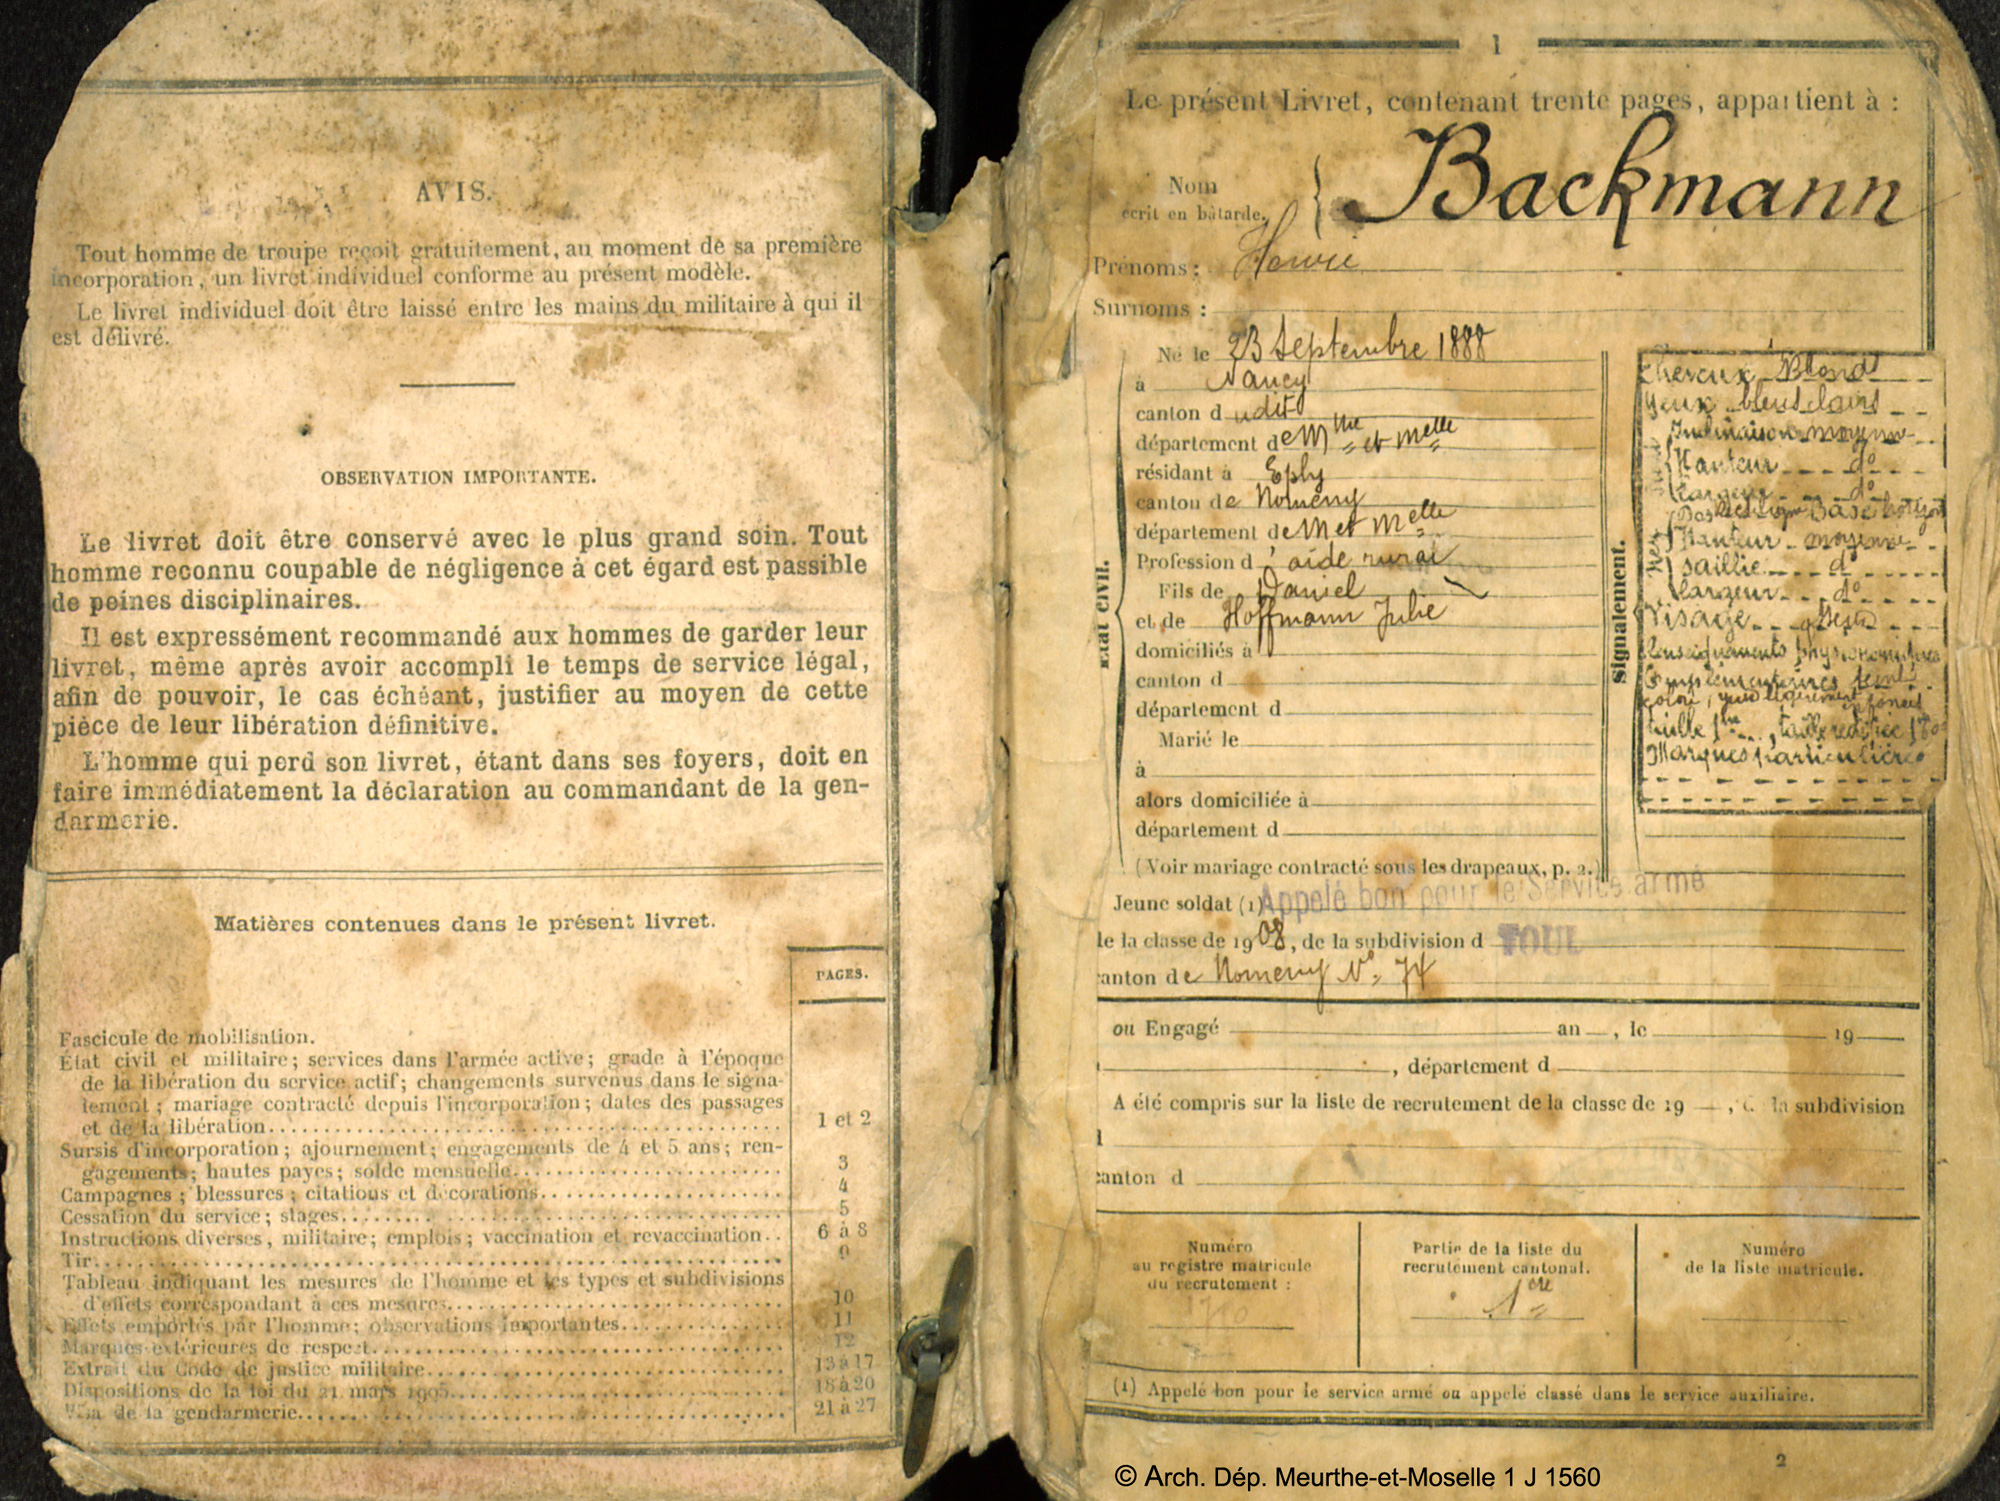 AVIS.
Tout homme de troupe reçoit gratuitement, au moment de sa première
incorporation, un livret individuel conforme au présent modèle.
Le livret individuel doit être laissé entre les mains du militaire à qui il
est délivré.
OBSERVATION IMPORTANTE.
Le livret doit être conservé avec le plus grand soin. Tout
homme reconnu coupable de négligence à cet égard est passible
de peines disciplinaires.
Il est expressément recommandé aux hommes de garder leur
livret, même après avoir accompli le temps de service légal,
afin de pouvoir, le cas échéant, justifier au moyen de cette
pièce de leur libération définitive.
L'homme qui perd son livret, étant dans ses foyers, doit en
faire immédiatement la déclaration au commandant de la gen-
darmerie.
Matières contenues dans le présent livret.
PAGES.
Fascicule de mobilisation.
État civil et militaire; services dans l'armée active; grade à l'époque
de la libération du service actif; changements survenus dans le signa-
lement; mariage contracté depuis l'incorporation; dates des passages
et de la libération 1 et 2
Sursis d'incorporation; ajournement; engagements de 4 et 5 ans; ren-
gagements; hautes payes; solde mensuelle 3
Campagnes; blessures; citations et décorations 4
Cessation du service; stages 5
Instructions diverses, militaire; emplois; vaccination et revaccination 6 à 8
Tir 9
Tableau indiquant les mesures de l'homme et les types et subdivisions
d'effets correspondant à ces mesures 10
Effets emportés par l'homme; observations importantes 11
Marques extérieures de respect 12
Extrait du Code de justice militaire 13 à 17
Dispositions de la loi du 21 mars 1905 18 à 20
Visa de la gendarmerie 21 à 27
1
Le présent Livret, contenant trente pages, appartient à :
Nom
écrit en bâtarde. Backmann
Prénoms : Henri
Surnoms :
État civil.
Né le 23 Septembre 1888
à Nancy
canton d udit
département de Mthe et Melle
résidant à Eply
canton de Nomeny
département de M et Melle
Profession d'aide rural
Fils de Daniel
et de Hoffmann Julie
domiciliés à
canton d
département d
Marié le
à
alors domiciliée à
département d
(Voir mariage contracté sous les drapeaux, p. 2.)
Signalement.
Cheveux Blond
Yeux bleus clairs
Inclinaison moyenne
Hauteur do
Largeur do
Hauteur moyenne
Saillie do
Largeur do
Visage
Renseignements physionomiques
Complémentaires
Marques particulières
Jeune soldat (1) Appelé bon pour le Service armé
de la classe de 1908, de la subdivision d TOUL
canton de Nomeny No 74
ou Engagé an , le 19
, département d
A été compris sur la liste de recrutement de la classe de 19 , de la subdivision
d
canton d
Numéro
au registre matricule
du recrutement :
Partie de la liste du
recrutement cantonal.
1ere
Numéro
de la liste matricule.
(1) Appelé bon pour le service armé ou appelé classé dans le service auxiliaire.
2
© Arch. Dép. Meurthe-et-Moselle 1 J 1560